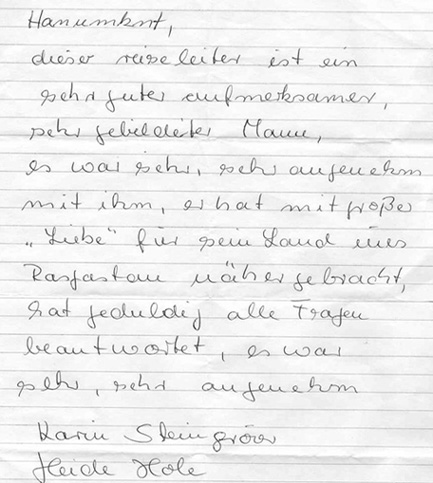 Hanumant,
dieser reiseleiter ist ein
sehr guter aufmerksamer,
sehr gebildeter Mann,
es war sehr, sehr angenehm
mit ihm, er hat mit großer
„Liebe“ für sein Land uns
Rasjastan näher gebracht,
hat geduldig alle Fragen
beantwortet, es war
sehr, sehr angenehm
Karin
Heide Hole